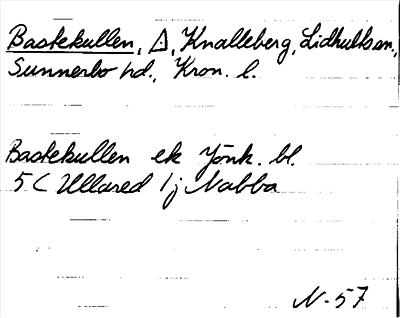 Bastekullen, ◬, Knalleberg, Lidhults sn.,
Sunnerbo hd., Kron. l.
Bastekullen ek Jönk. bl.
5 C Ullared 1j Nabba
N-57